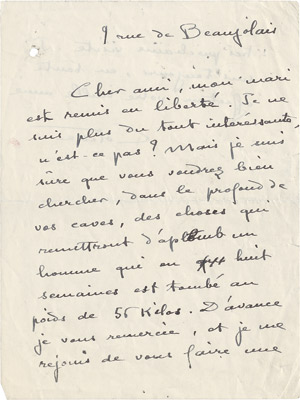 9 rue de Beaujolais
Cher ami, mon mari
est remis en liberté. Je ne
suis plus du tout intéressante,
n'est-ce pas? Mais je suis
sûre que vous voudrez bien
chercher, dans le profond de
vos caves, des choses qui
remettront d'aplomb un
homme qui en huit
semaines est tombé au
poids de 56 kilos. D'avance
je vous remercie, et je me
rejouis de vous faire une